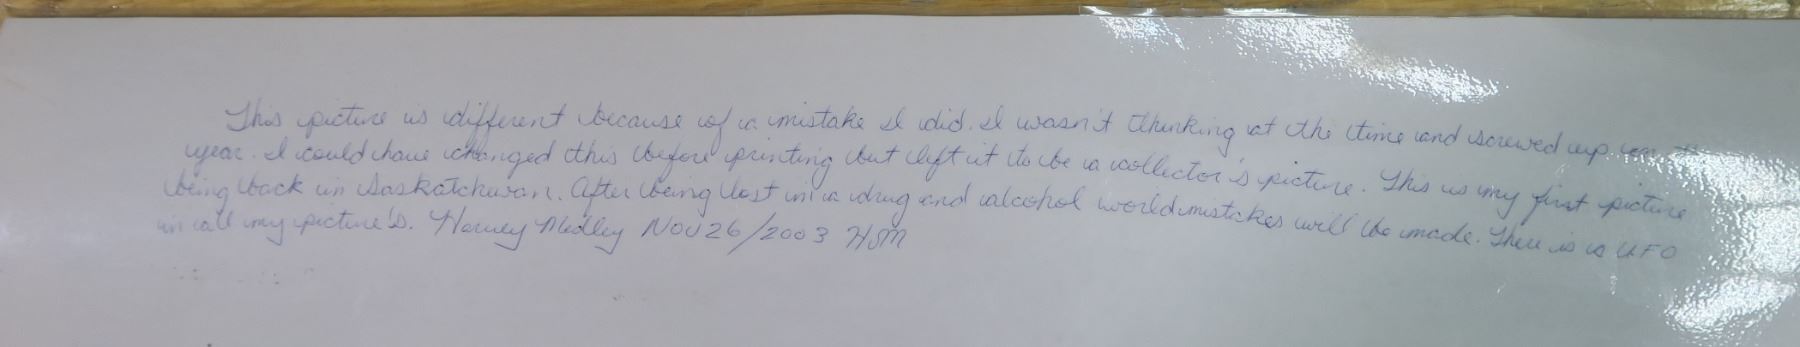 This picture is different because of a mistake I did. I wasn't thinking at the time and screwed up on the
year. I could have changed this before printing but left it to be a collector's picture. This is my first picture
being back in Saskatchewan. After being lost in a drug and alcohol world mistakes will be made. There is a UFO
in all my picture's. Harvey Medley Nov 26/2003 HSM